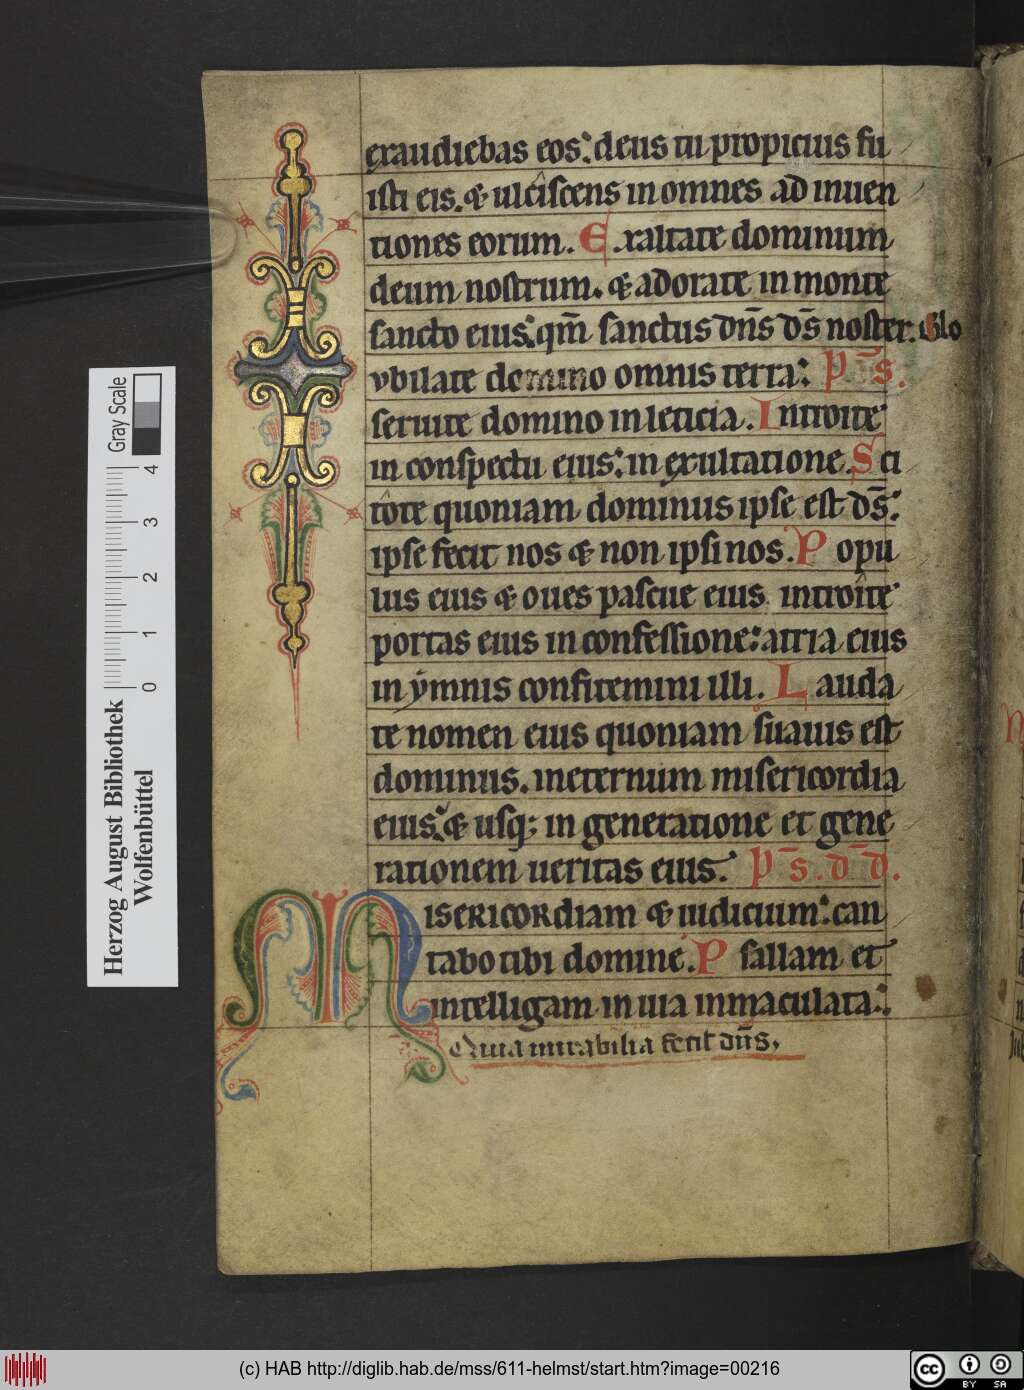 exaudiebas eos: deus tu propicius fu
isti eis. & ulciscens in omnes ad inuen
tiones eorum. Exaltate dominum
deum nostrum. & adorate in monte
sancto eius: qm̄ sanctus dn̄s ds̄ noster. Glo
ubilate domino omnis terra: p̄ s.
seruite domino in leticia. Introite
in conspectu eius: in exultatione. Sci
tote quoniam dominus ipse est ds̄:
ipse fecit nos & non ipsi nos. Popu
lus eius & oues pascue eius introite
portas eius in confessione: atria eius
in ymnis confitemini illi. Lauda
te nomen eius quoniam suauis est
dominus. ineternum misericordia
eius: & usq; in generatione et gene
rationem ueritas eius. p̄ s. d̄ d.
Misericordiam & iudicium: can
tabo tibi domine. Psallam et
intelligam in uia inmaculata:
Quia mirabilia fecit dn̄s.
Gray Scale
4
3
2
1
0
Herzog August Bibliothek
Wolfenbüttel
(c) HAB http://diglib.hab.de/mss/611-helmst/start.htm?image=00216
cc BY SA